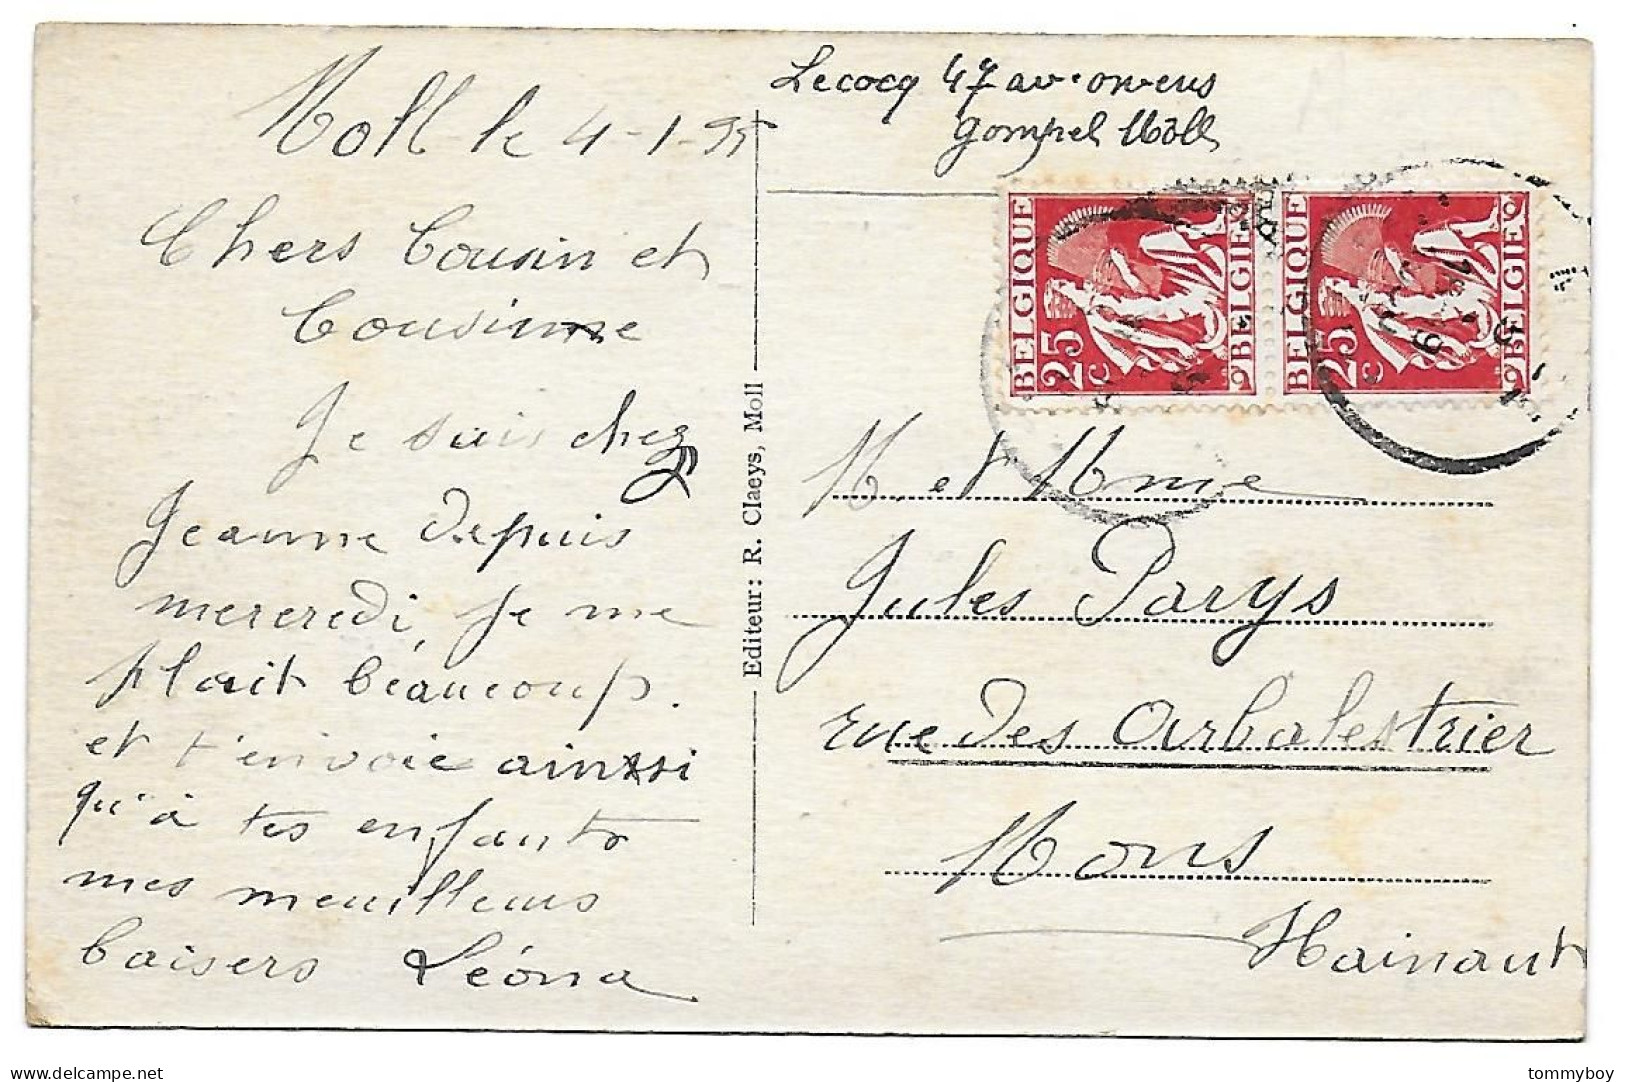 Moll le 4-1-35
Chers Cousin et
Cousinne
Je suis chez
Jeanne depuis
mercredi, je me
plait béaucoup.
et t'envoie ainsi
qu'à tes enfants
mes meuilleurs
baisers Léona
Editeur: R. Claeys, Moll
Lecocq 47 av. owens
Gompel Môll
BELGIQUE 25c BELGIË
BELGIQUE 25c BELGIË
M. et Mme
Jules Parys
rue des Arbalestrier
Mons
Hainaut
tommyboy